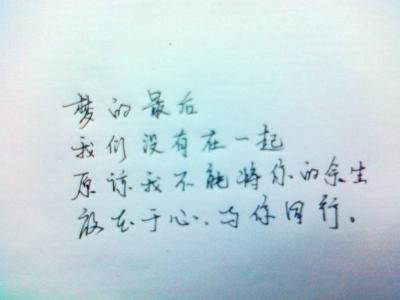 梦的最后
我们没有在一起
原谅我不能将你的余生
放在于心、与你同行。